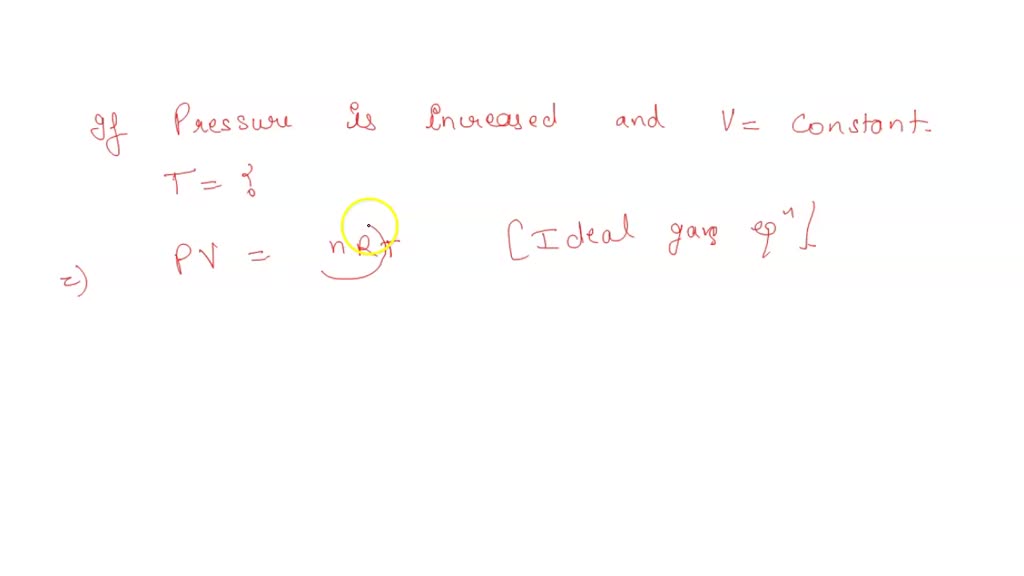 If Pressure is increased and V = constant.
T = ?
PV = nRT [Ideal gas eqⁿ]
=)